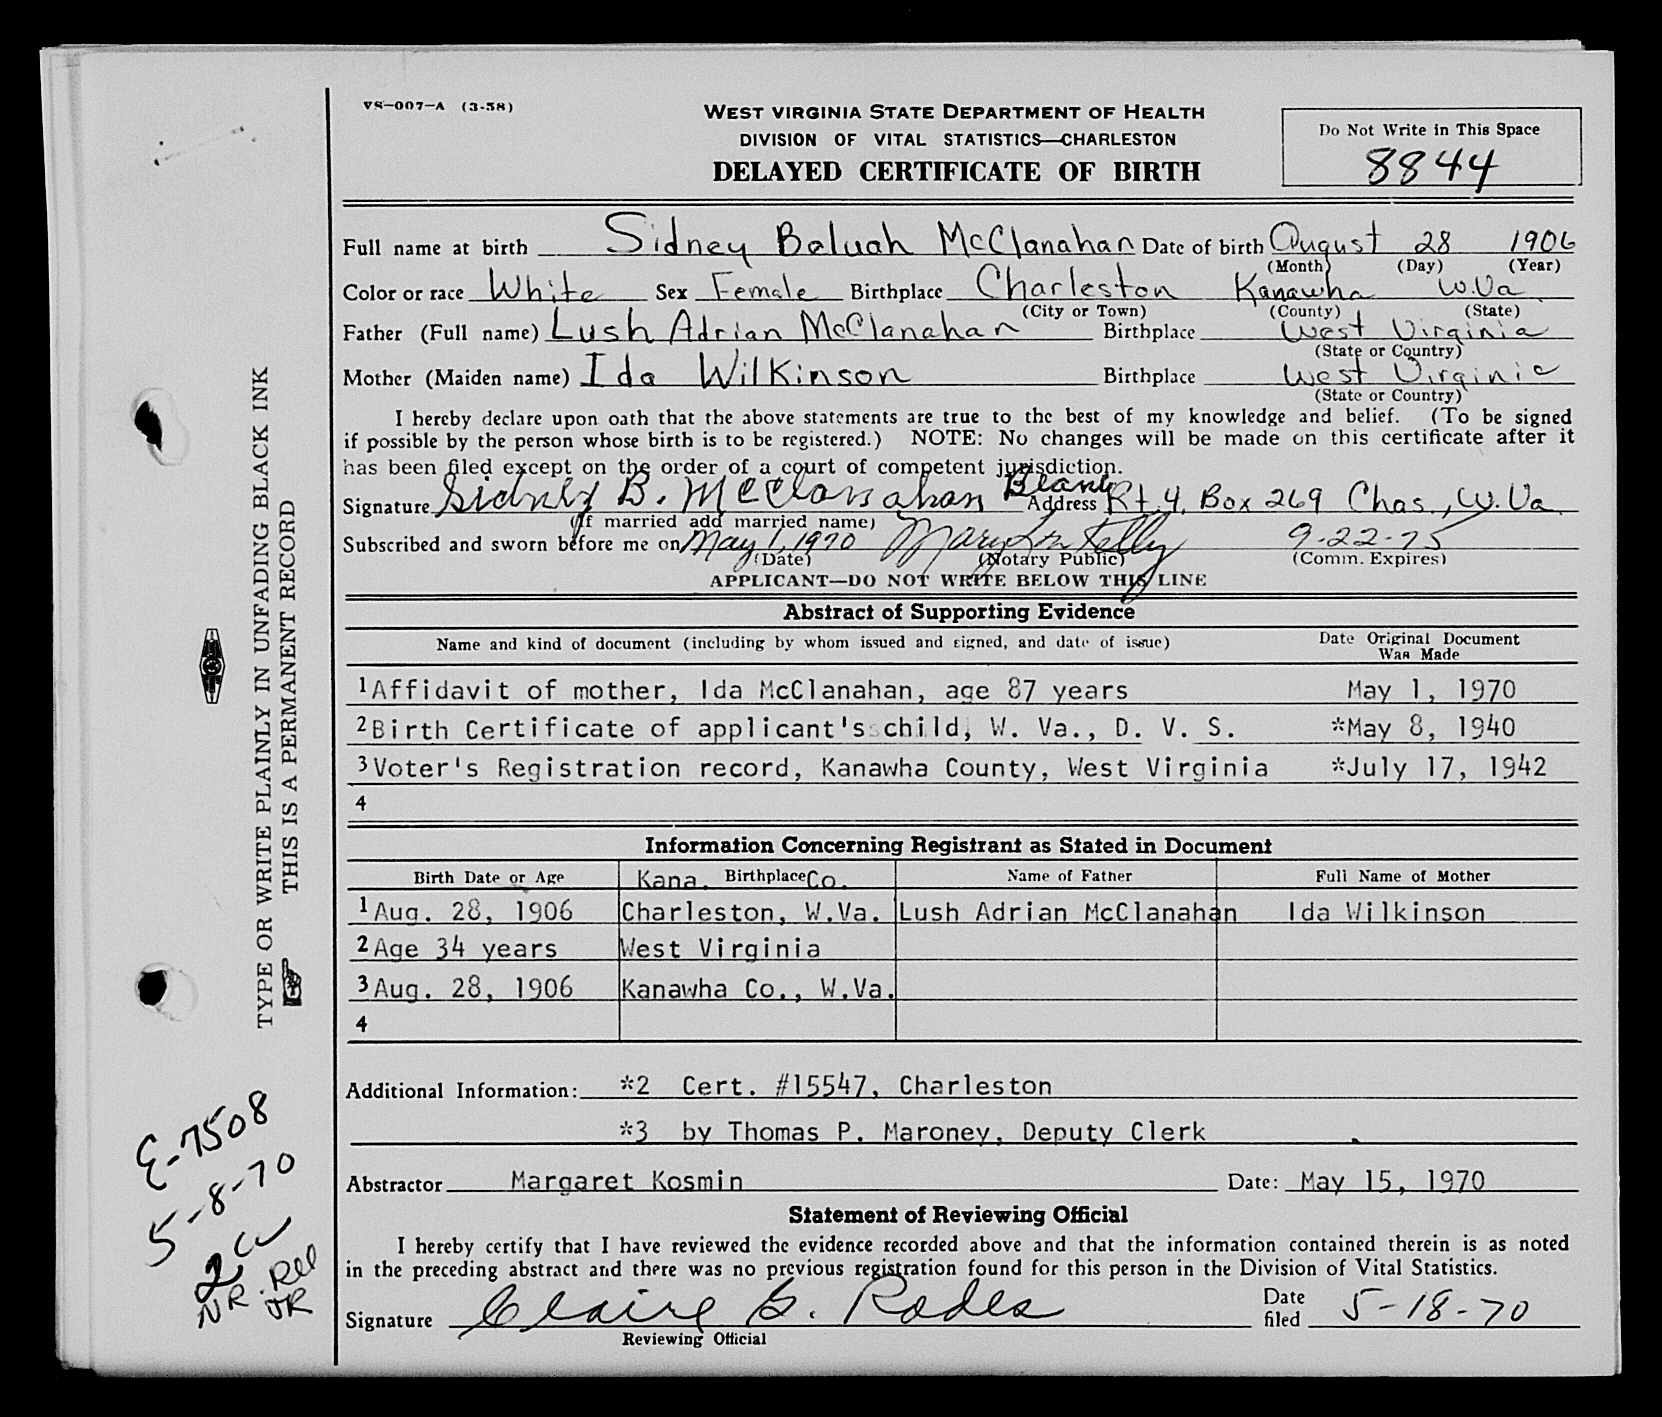 VS-007-A (3-58)
WEST VIRGINIA STATE DEPARTMENT OF HEALTH
DIVISION OF VITAL STATISTICS—CHARLESTON
DELAYED CERTIFICATE OF BIRTH
Do Not Write in This Space
8844
Full name at birth Sidney Baluah McClanahan Date of birth August 28 1906
(Month) (Day) (Year)
Color or race White Sex Female Birthplace Charleston Kanawha W.Va
(City or Town) (County) (State)
Father (Full name) Lush Adrian McClanahan Birthplace West Virginia
(State or Country)
Mother (Maiden name) Ida Wilkinson Birthplace West Virginia
(State or Country)
I hereby declare upon oath that the above statements are true to the best of my knowledge and belief. (To be signed
if possible by the person whose birth is to be registered.) NOTE: No changes will be made on this certificate after it
has been filed except on the order of a court of competent jurisdiction.
Signature Sidney B. McClanahan Address Rt. 4, Box 269 Chas., W. Va.
(If married add married name)
Subscribed and sworn before me on May 1, 1970 Mary 9-22-75
(Date) (Notary Public) (Comm. Expires)
APPLICANT—DO NOT WRITE BELOW THIS LINE
Abstract of Supporting Evidence
Name and kind of document (including by whom issued and signed, and date of issue) Date Original Document
Was Made
1 Affidavit of mother, Ida McClanahan, age 87 years May 1, 1970
2 Birth Certificate of applicant's child, W. Va., D. V. S. *May 8, 1940
3 Voter's Registration record, Kanawha County, West Virginia *July 17, 1942
4
Information Concerning Registrant as Stated in Document
Birth Date or Age Kana. Birthplace Co. Name of Father Full Name of Mother
1 Aug. 28, 1906 Charleston, W.Va. Lush Adrian McClanahan Ida Wilkinson
2 Age 34 years West Virginia
3 Aug. 28, 1906 Kanawha Co., W.Va.
4
Additional Information: *2 Cert. #15547, Charleston
*3 by Thomas P. Maroney, Deputy Clerk
Abstractor Margaret Kosmin Date: May 15, 1970
Statement of Reviewing Official
I hereby certify that I have reviewed the evidence recorded above and that the information contained therein is as noted
in the preceding abstract and there was no previous registration found for this person in the Division of Vital Statistics.
Signature Claire G. Rodes Date
filed 5-18-70
Reviewing Official
TYPE OR WRITE PLAINLY IN UNFADING BLACK INK
THIS IS A PERMANENT RECORD
E-7508
5-8-70
NR